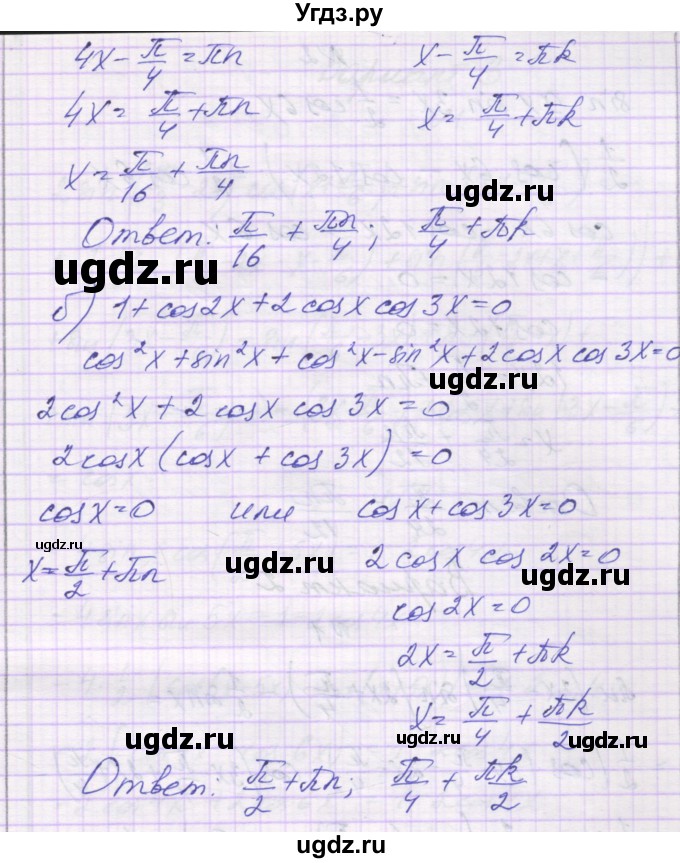 Угдз.ру
4x - π/4 = πn    x - π/4 = πk
4x = π/4 + πn    x = π/4 + πk
x = π/16 + πn/4
Ответ: π/16 + πn/4; π/4 + πk
ugdz.ru
ugdz.ru
б) 1 + cos2x + 2cosx cos3x = 0
cos²x + sin²x + cos²x - sin²x + 2cosx cos3x = 0
ugdz.ru
2cos²x + 2cosx cos3x = 0
2cosx (cosx + cos3x) = 0
cosx = 0 или cosx + cos3x = 0
ugdz.ru
ugdz.ru
ugdz.ru
x = π/2 + πn    2cosx cos2x = 0
cos2x = 0
2x = π/2 + πk
x = π/4 + πk/2
ugdz.ru
ugdz.ru
Ответ: π/2 + πn; π/4 + πk/2
ugdz.ru
ugdz.ru